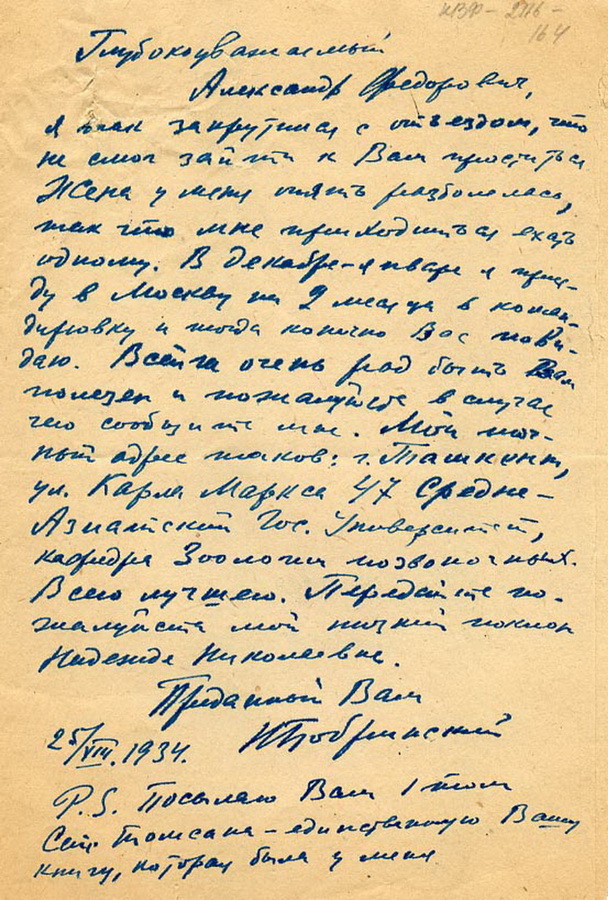 КВФ-
164
Глубокоуважаемый
Александр Федорович,
я так закрутился с отъездом, что
не смог зайти к Вам проститься
Жена у меня опять разболелась,
так что мне приходиться ехать
одному. В декабре-январе я прие-
ду в Москву на 2 месяца в коман-
дировку и тогда конечно Вас пови-
даю. Всегда очень рад быть Вам
полезен и пожалуйста в случае
чего сообщите мне. Мой точ-
ный адрес таков: г. Ташкент,
ул. Карла Маркса 47 Средне-
Азиатский Гос. Университет,
кафедра Зоологии позвоночных.
Всего лучшего. Передайте по-
жалуйста мой низкий поклон
Надежде Николаевне.
Преданный Вам
25/VIII. 1934. Н Бобринский
P.S. Посылаю Вам 1 том
Сет. Томсона - единственную Вашу
книгу, которая была у меня